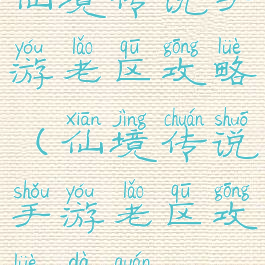 仙境传说手
yóu lǎo qū gōng lüè
游老区攻略
xiān jìng chuán shuō
(仙境传说
shǒu yóu lǎo qū gōng
手游老区攻
lüè dà quán